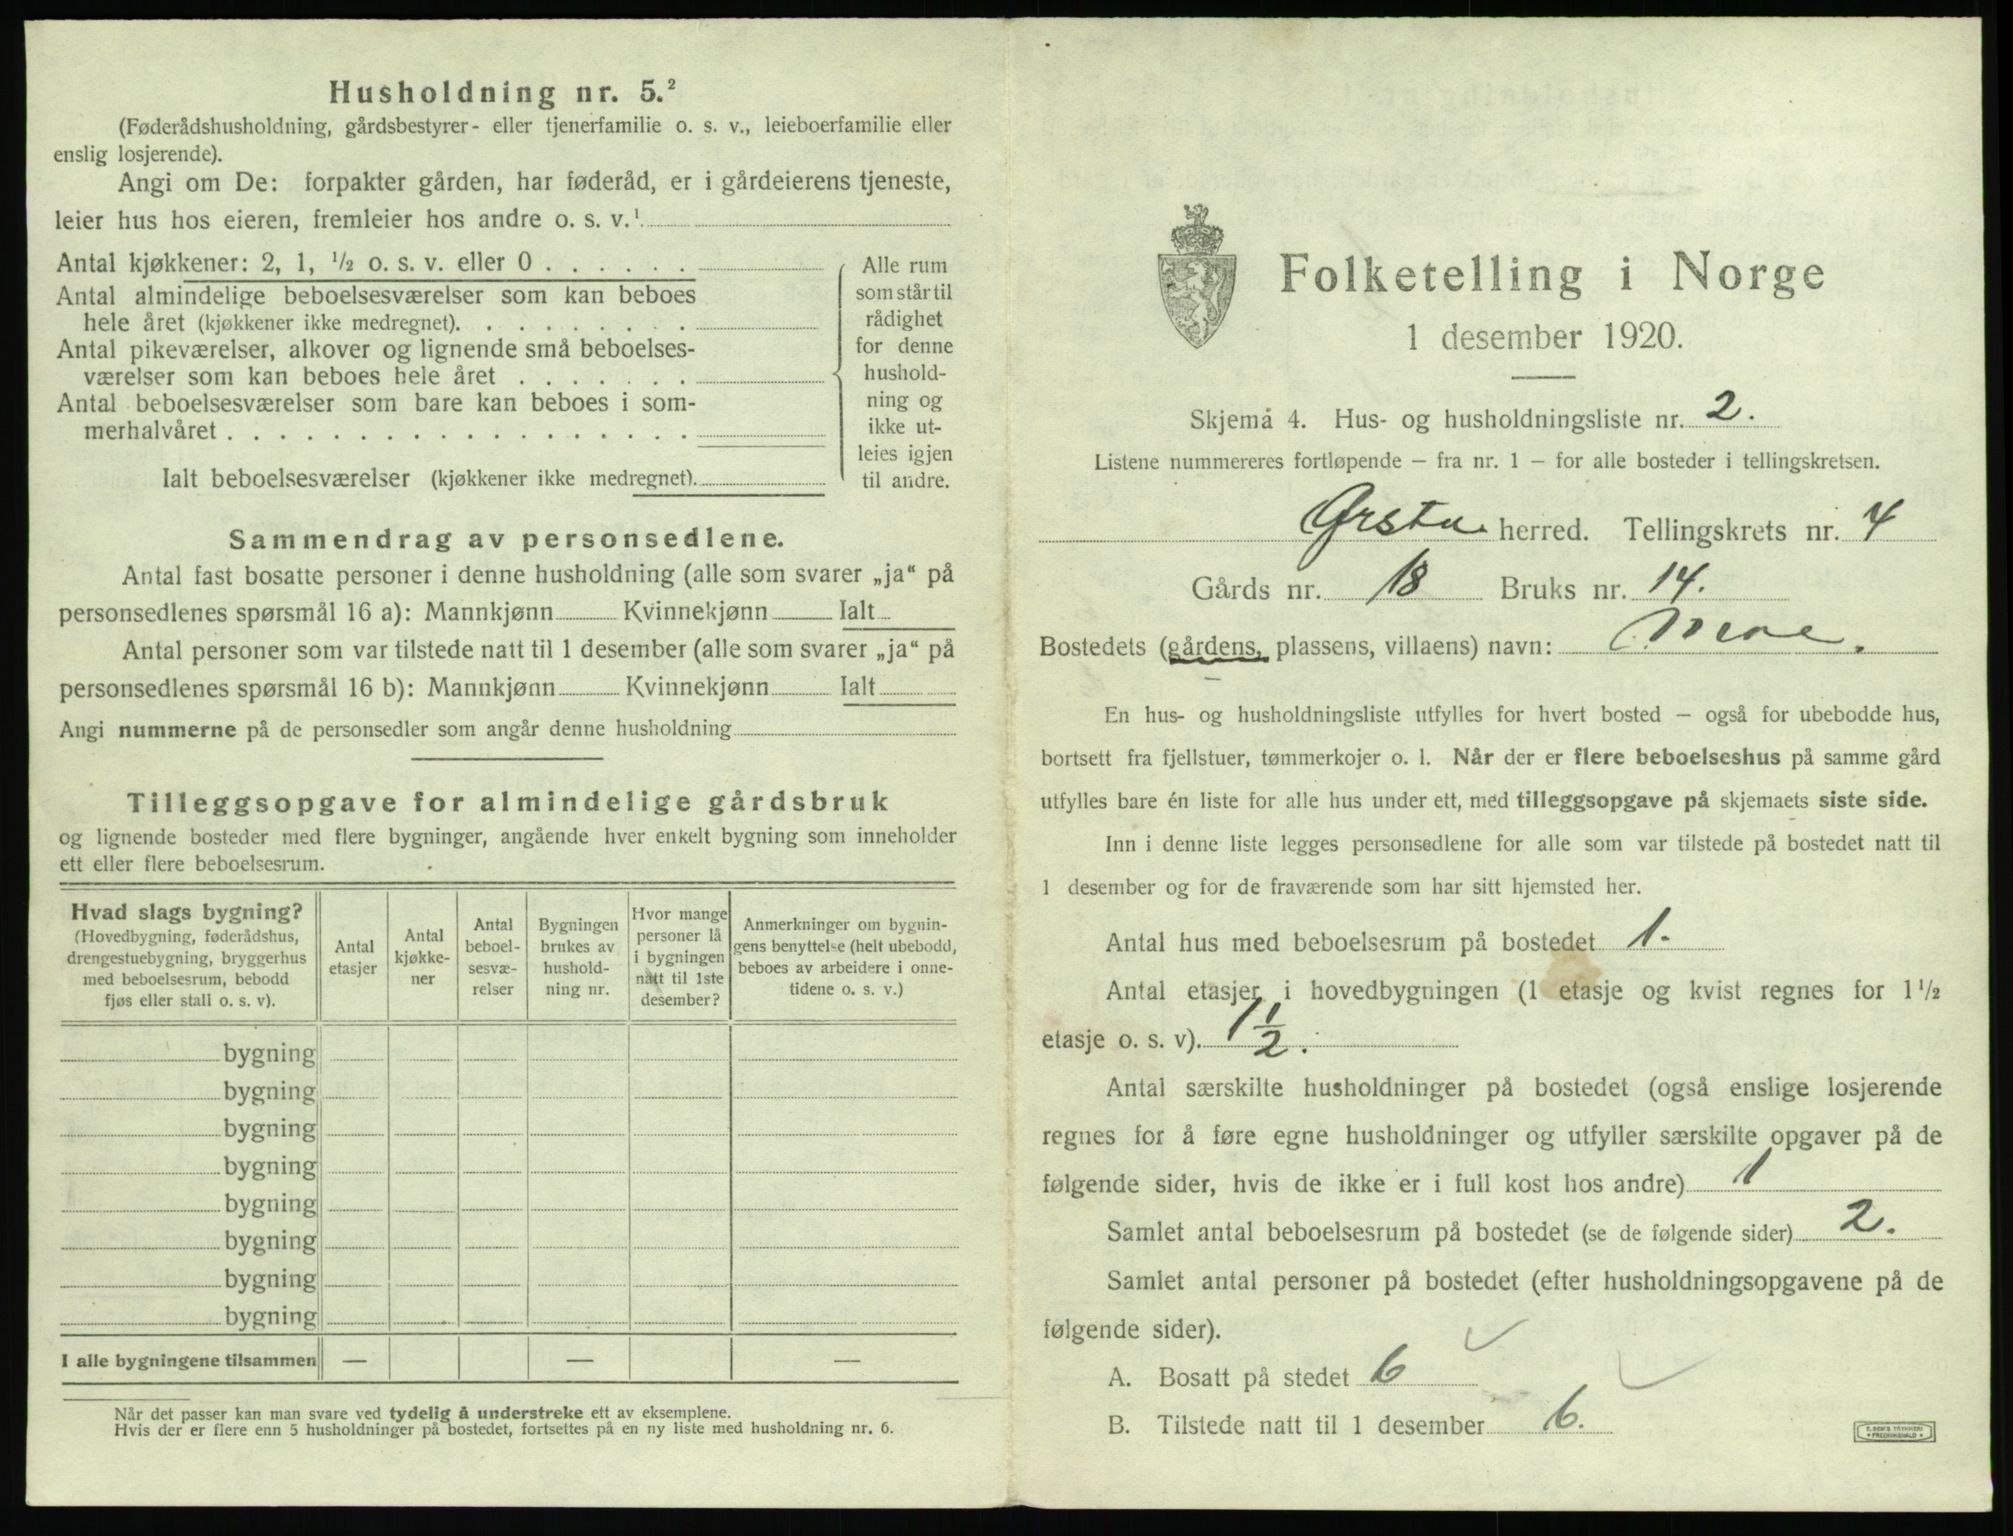 Husholdning nr. 5.²
(Føderådshusholdning, gårdsbestyrer- eller tjenerfamilie o. s. v., leieboerfamilie eller
enslig losjerende).
Angi om De: forpakter gården, har føderåd, er i gårdeierens tjeneste,
leier hus hos eieren, fremleier hos andre o. s. v.¹
Antal kjøkkener: 2, 1, ½ o. s. v. eller 0 . . . . . .
Antal almindelige beboelsesværelser som kan beboes
hele året (kjøkkener ikke medregnet). . . . . . . . .
Antal pikeværelser, alkover og lignende små beboelses-
værelser som kan beboes hele året . . . . . . .
Antal beboelsesværelser som bare kan beboes i som-
merhalvåret . . . . . . . . . . . . . . . . . .
Ialt beboelsesværelser (kjøkkener ikke medregnet).
Alle rum
som står til
rådighet
for denne
hushold-
ning og
ikke ut-
leies igjen
til andre.
Sammendrag av personsedlene.
Antal fast bosatte personer i denne husholdning (alle som svarer „ja“ på
personsedlenes spørsmål 16 a): Mannkjønn Kvinnekjønn Ialt
Antal personer som var tilstede natt til 1 desember (alle som svarer „ja“ på
personsedlenes spørsmål 16 b): Mannkjønn Kvinnekjønn Ialt
Angi nummerne på de personsedler som angår denne husholdning
Tilleggsopgave for almindelige gårdsbruk
og lignende bosteder med flere bygninger, angående hver enkelt bygning som inneholder
ett eller flere beboelsesrum.
Hvad slags bygning?
(Hovedbygning, føderådshus,
drengestuebygning, bryggerhus
med beboelsesrum, bebodd
fjøs eller stall o. s. v).
Antal
etasjer
Antal
kjøkke-
ner
Antal
beboel-
sesvæ-
relser
Bygningen
brukes av
hushold-
ning nr.
Hvor mange
personer lå
i bygningen
natt til 1ste
desember?
Anmerkninger om bygnin-
gens benyttelse (helt ubebodd,
beboes av arbeidere i onne-
tidene o. s. v.)
bygning
bygning
bygning
bygning
bygning
bygning
bygning
bygning
I alle bygningene tilsammen — — —
Når det passer kan man svare ved tydelig å understreke ett av eksemplene.
Hvis der er flere enn 5 husholdninger på bostedet, fortsettes på en ny liste med husholdning nr. 6.
Folketelling i Norge
1 desember 1920.
Skjema 4. Hus- og husholdningsliste nr. 2.
Listene nummereres fortløpende – fra nr. 1 – for alle bosteder i tellingskretsen.
Ørsta herred. Tellingskrets nr. 4
Gårds nr. 18 Bruks nr. 14.
Bostedets (gårdens, plassens, villaens) navn:
En hus- og husholdningsliste utfylles for hvert bosted – også for ubebodde hus,
bortsett fra fjellstuer, tømmerkojer o. l. Når der er flere beboelseshus på samme gård
utfylles bare én liste for alle hus under ett, med tilleggsopgave på skjemaets siste side.
Inn i denne liste legges personsedlene for alle som var tilstede på bostedet natt til
1 desember og for de fraværende som har sitt hjemsted her.
Antal hus med beboelsesrum på bostedet 1.
Antal etasjer i hovedbygningen (1 etasje og kvist regnes for 1½
etasje o. s. v). 1½.
Antal særskilte husholdninger på bostedet (også enslige losjerende
regnes for å føre egne husholdninger og utfyller særskilte opgaver på de
følgende sider, hvis de ikke er i full kost hos andre) 1
Samlet antal beboelsesrum på bostedet (se de følgende sider) 2.
Samlet antal personer på bostedet (efter husholdningsopgavene på de
følgende sider).
A. Bosatt på stedet 6
B. Tilstede natt til 1 desember 6.